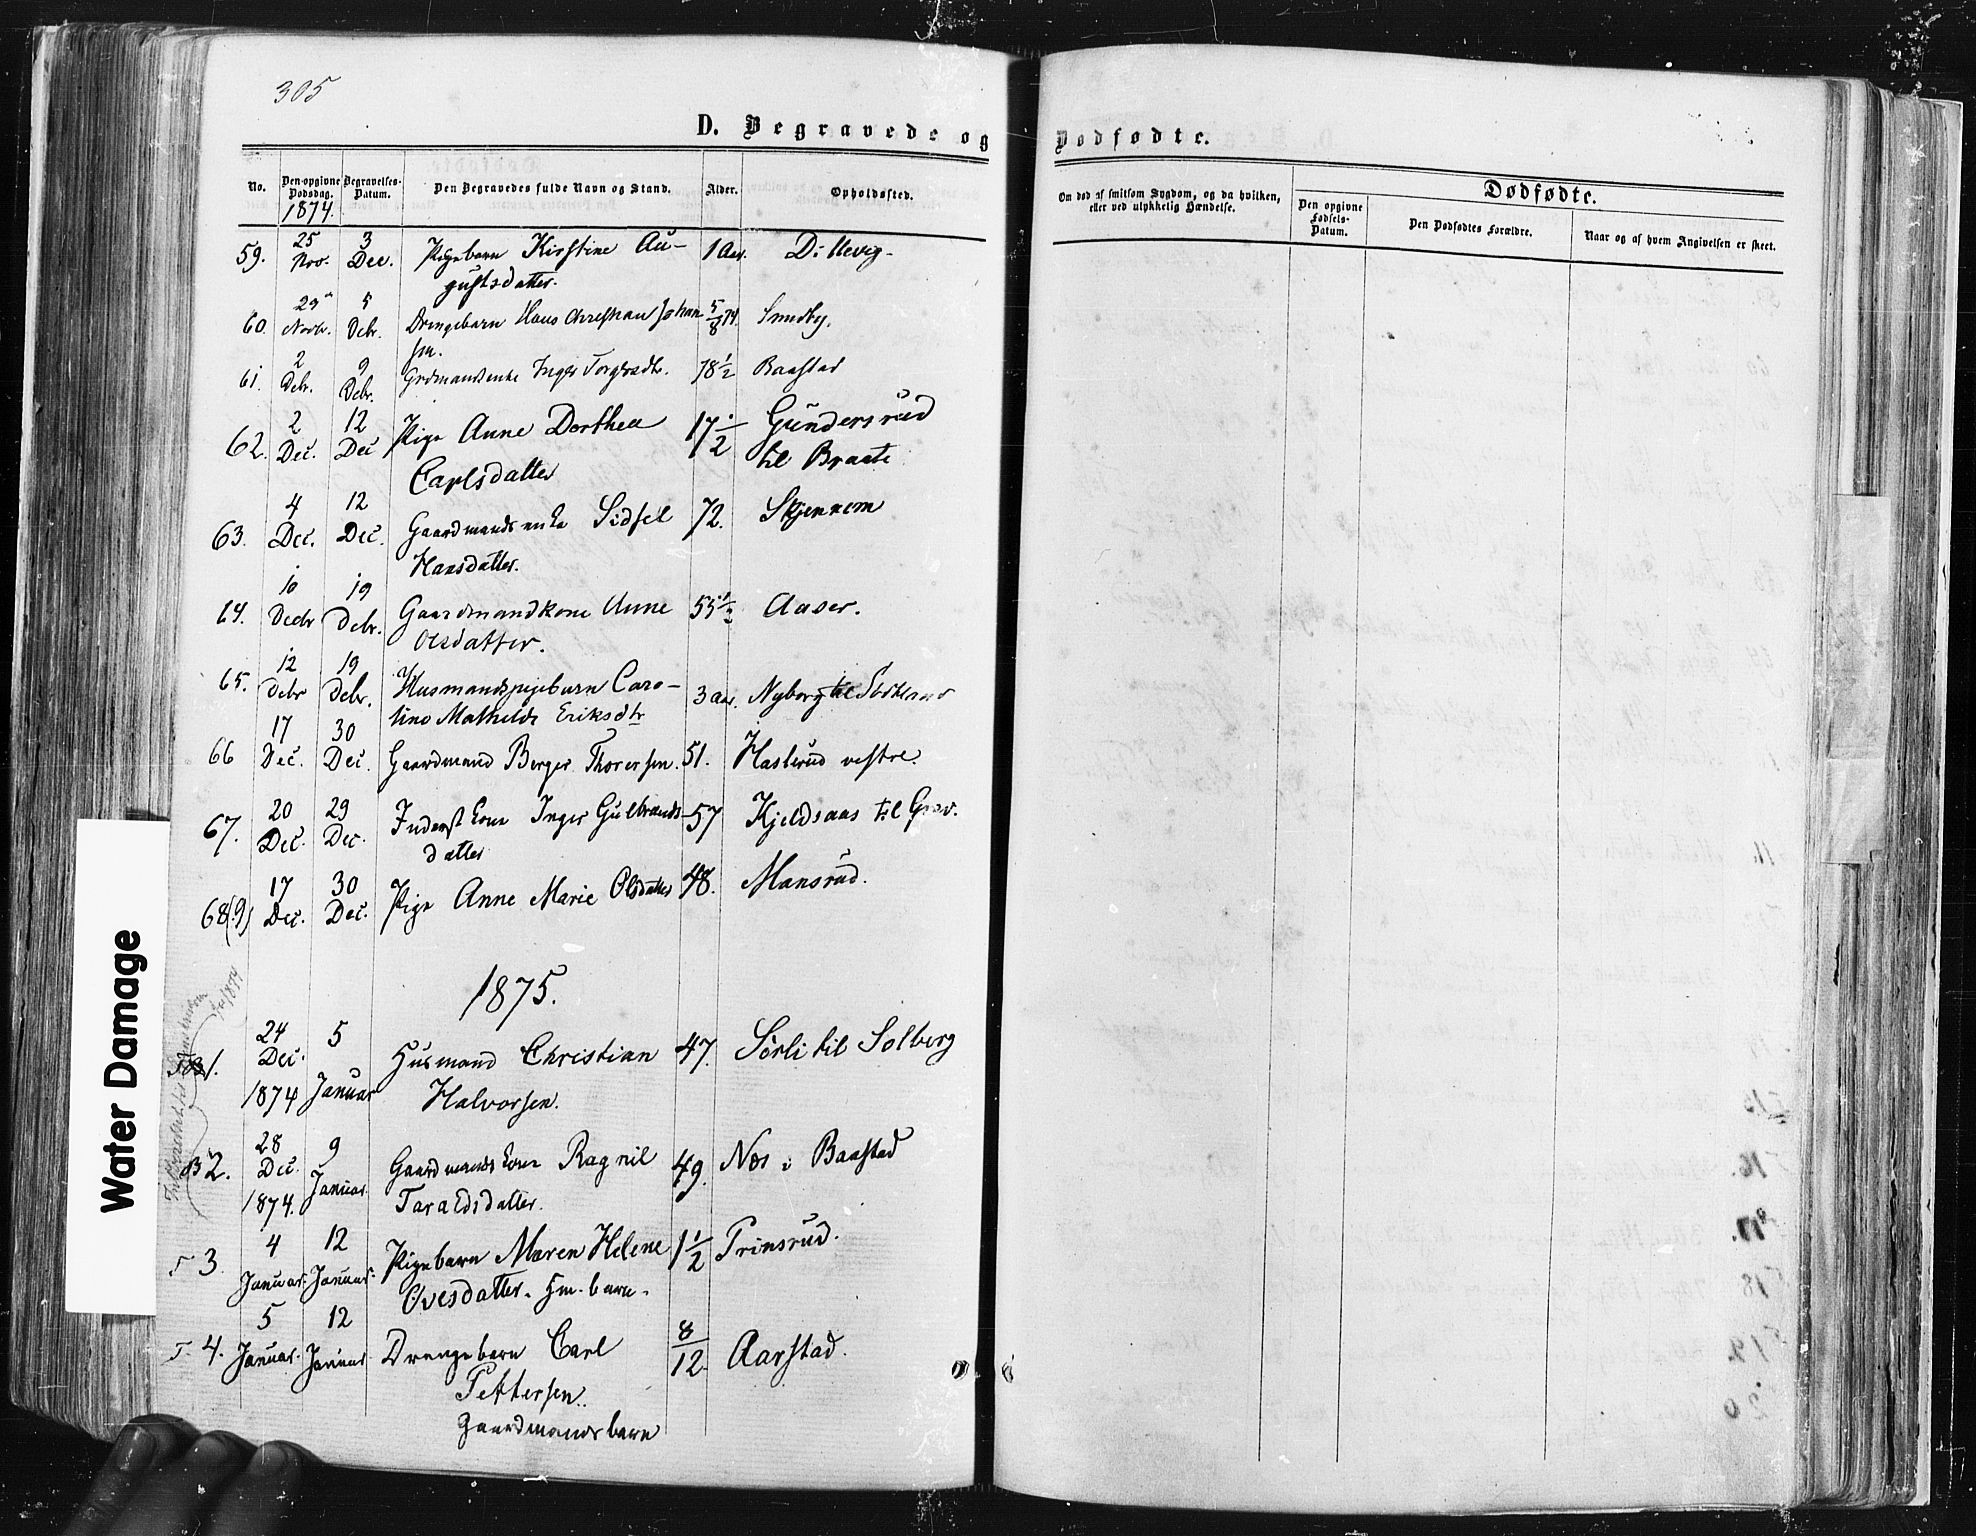 305
D. Begravede og Dødfødte.
No. Den opgivne Dødsdag. Begravelses-Datum. Den Begravedes fulde Navn og Stand. Alder. Opholdssted.
1874.
Om død af smitsom Sygdom, og da hvilken, eller ved ulykkelig Hændelse.
Dødfødte.
Den opgivne Fødsels-Datum. Den Dødfødtes Forældre. Naar og af hvem Angivelsen er skeet.
59. 25 Nov. 3 Dec. Pigebarn Kirstine Au- 1 Aar.
gustsdatter.
60. 29 Novbr. 5 Debr. Drengebarn Hans Christian Johan 5/8 74. Smedby.
sen.
61. 2 Debr. 9 Debr. Grdmandsenke Inger 78 1/2 Baastad
62. 2 Dec. 12 Dec Pige Anne Dorthea 17 1/2 Gundersrud
Carlsdatter til Braate
63. 4 Dec. 12 Dec. Gaardmandsenke Sidsel 72. Skjennem
Hansdatter.
64. 10 Decbr 19 Debr. Gaardmandkone Anne 55 1/2 Aaser.
Olsdatter.
65. 12 Debr 19 Debr. Husmandspigebarn Caro- 3 aar. Nyborg til
line Mathilde Eriksdtr
66 17 Dec. 30 Dec. Gaardmand Berger Thorersen. 51. Haslerud vestre.
67. 20 Dec. 29 Dec. Inderstkone Inger Gulbrands- 57 Kjeldsaas til Grav.
datter
68(9) 17 Dec. 30 Dec. Pige Anne Marie Olsdatter 48. Mansrud.
1875.
1. 24 Dec. 1874 5 Januar Husmand Christian 47. Sørli til Solberg
Halvorsen.
2. 28 Dec. 1874. 9 Januar. Gaardmandskone Ragnil 49. Næs i Baastad
Taraldsdatter.
T 3. 4 Januar. 12 Januar. Pigebarn Maren Helene 1 1/2 Prinsrud.
Ovesdatter. Hm. barn.
T. 4. 5 Januar. 12 Januar Drengebarn Carl 8/12 Aarstad.
Pettersen.
Gaardmandsbarn
Water Damage